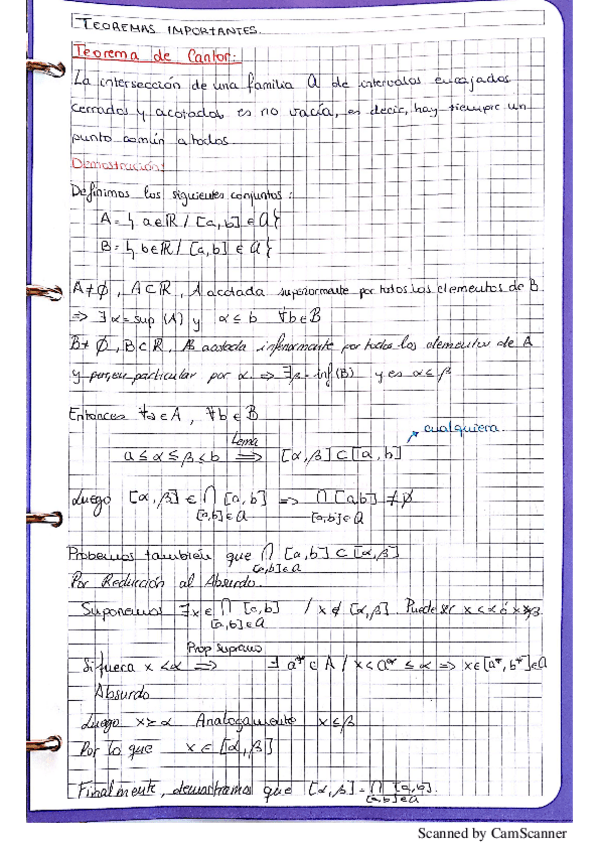 TEOREMAS IMPORTANTES.
Teorema de Cantor:
La intersección de una familia a de intervalos encajados
cerrados y acotados, es no vacía, es decir, hay siempre un
punto común a todos.
Demostración:
Definimos los siguientes conjuntos:
A = { a∈ℝ / [a,b] ∈ a }
B = { b∈ℝ / [a,b] ∈ a }
A≠∅, A⊂ℝ, A acotada superiormente por todos los elementos de B.
⇒ ∃ α = sup (A) y α ≤ b ∀b∈B
B≠∅, B⊂ℝ, B acotada inferiormente por todos los elementos de A
y particular por α ⇒ ∃β = inf (B) y es α ≤ β
Entonces ∀a∈A, ∀b∈B
cualquiera.
Lema
a ≤ α ≤ β ≤ b ⇒ [α,β] ⊂ [a,b]
Luego [α,β] ∈ ⋂ [a,b] ⇒ ⋂ [a,b] ≠ ∅
[a,b]∈a [a,b]∈a
Probemos también que ⋂ [a,b] ⊂ [α,β]
[a,b]∈a
Por Reducción al Absurdo.
Suponemos ∃x ∈ ⋂ [a,b] / x ∉ [α,β]. Puede ser x < α ó x > β.
[a,b]∈a
Prop supremo
Si fuera x < α ⇒ ∃ a* ∈ A / x < a* ≤ α ⇒ x∈[a*,b*]∈a
Absurdo
Luego x ≥ α Analogamente x ≤ β
Por lo que x ∈ [α,β]
Finalmente, demostramos que [α,β] = ⋂ [a,b].
[a,b]∈a
Scanned by CamScanner